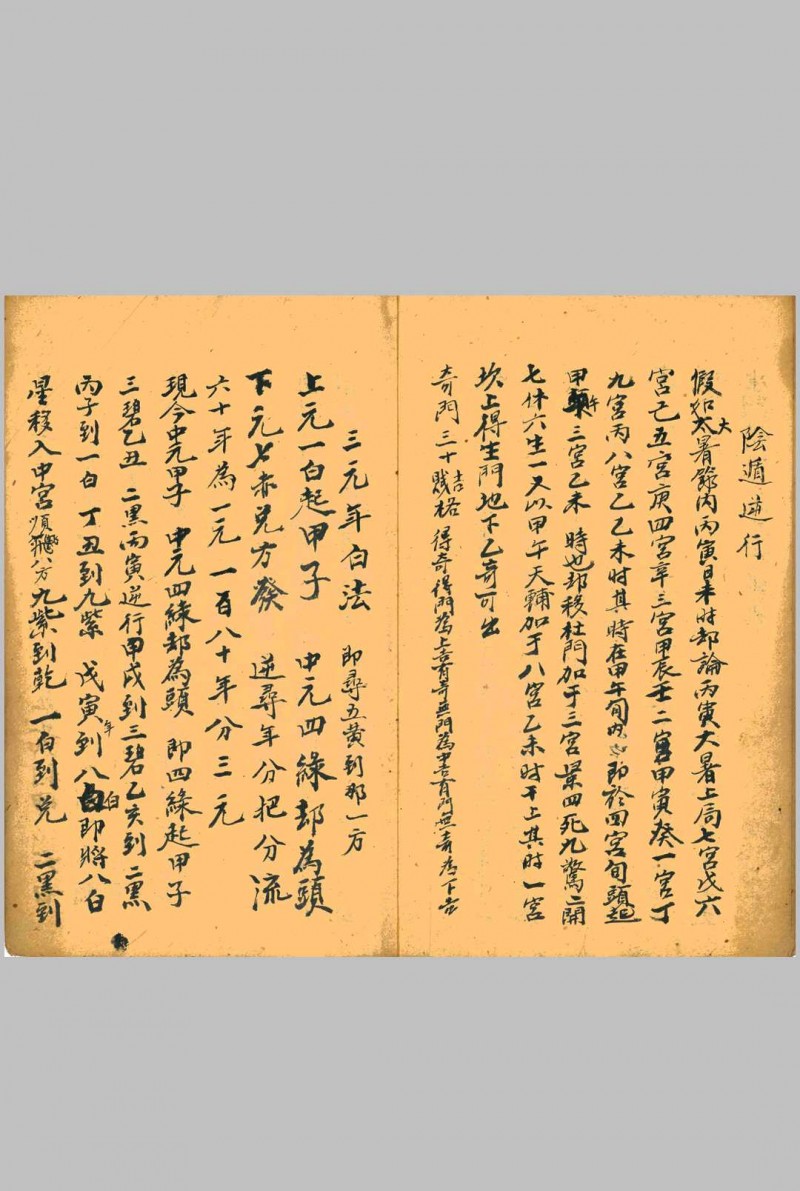 陰遁逆行
假如大暑節內丙寅日未时却論丙寅大暑上局七宮戊六
宮己五宮庚四宮辛三宮甲辰壬二宮甲寅癸一宮丁
九宮丙八宮乙乙未时其時在甲午旬內即於四宮旬頭起
甲午三宮乙未 時也却移杜門加于三宮景四死九驚二開
七休六生一又以甲午天輔加于八宮乙未时干上其时一宮
坎上得生門地下乙奇可出
奇門三十吉賎格 得奇得門為上吉有奇無門為中吉有門無奇為下吉
三元年白法 即尋五黃到那一方
上元一白起甲子 中元四綠却為頭
下元七赤兌方發 逆尋年分把分流
六十年為一元一百八十年分三元
現今中元甲子 中元四綠却為頭 即四綠起甲子
三碧乙丑 二黑丙寅逆行甲戌到三碧乙亥到二黑
丙子到一白 丁丑到九紫 戊寅年到八白即將八白
星移入中宮順飛八方九紫到乾 一白到兌 二黑到